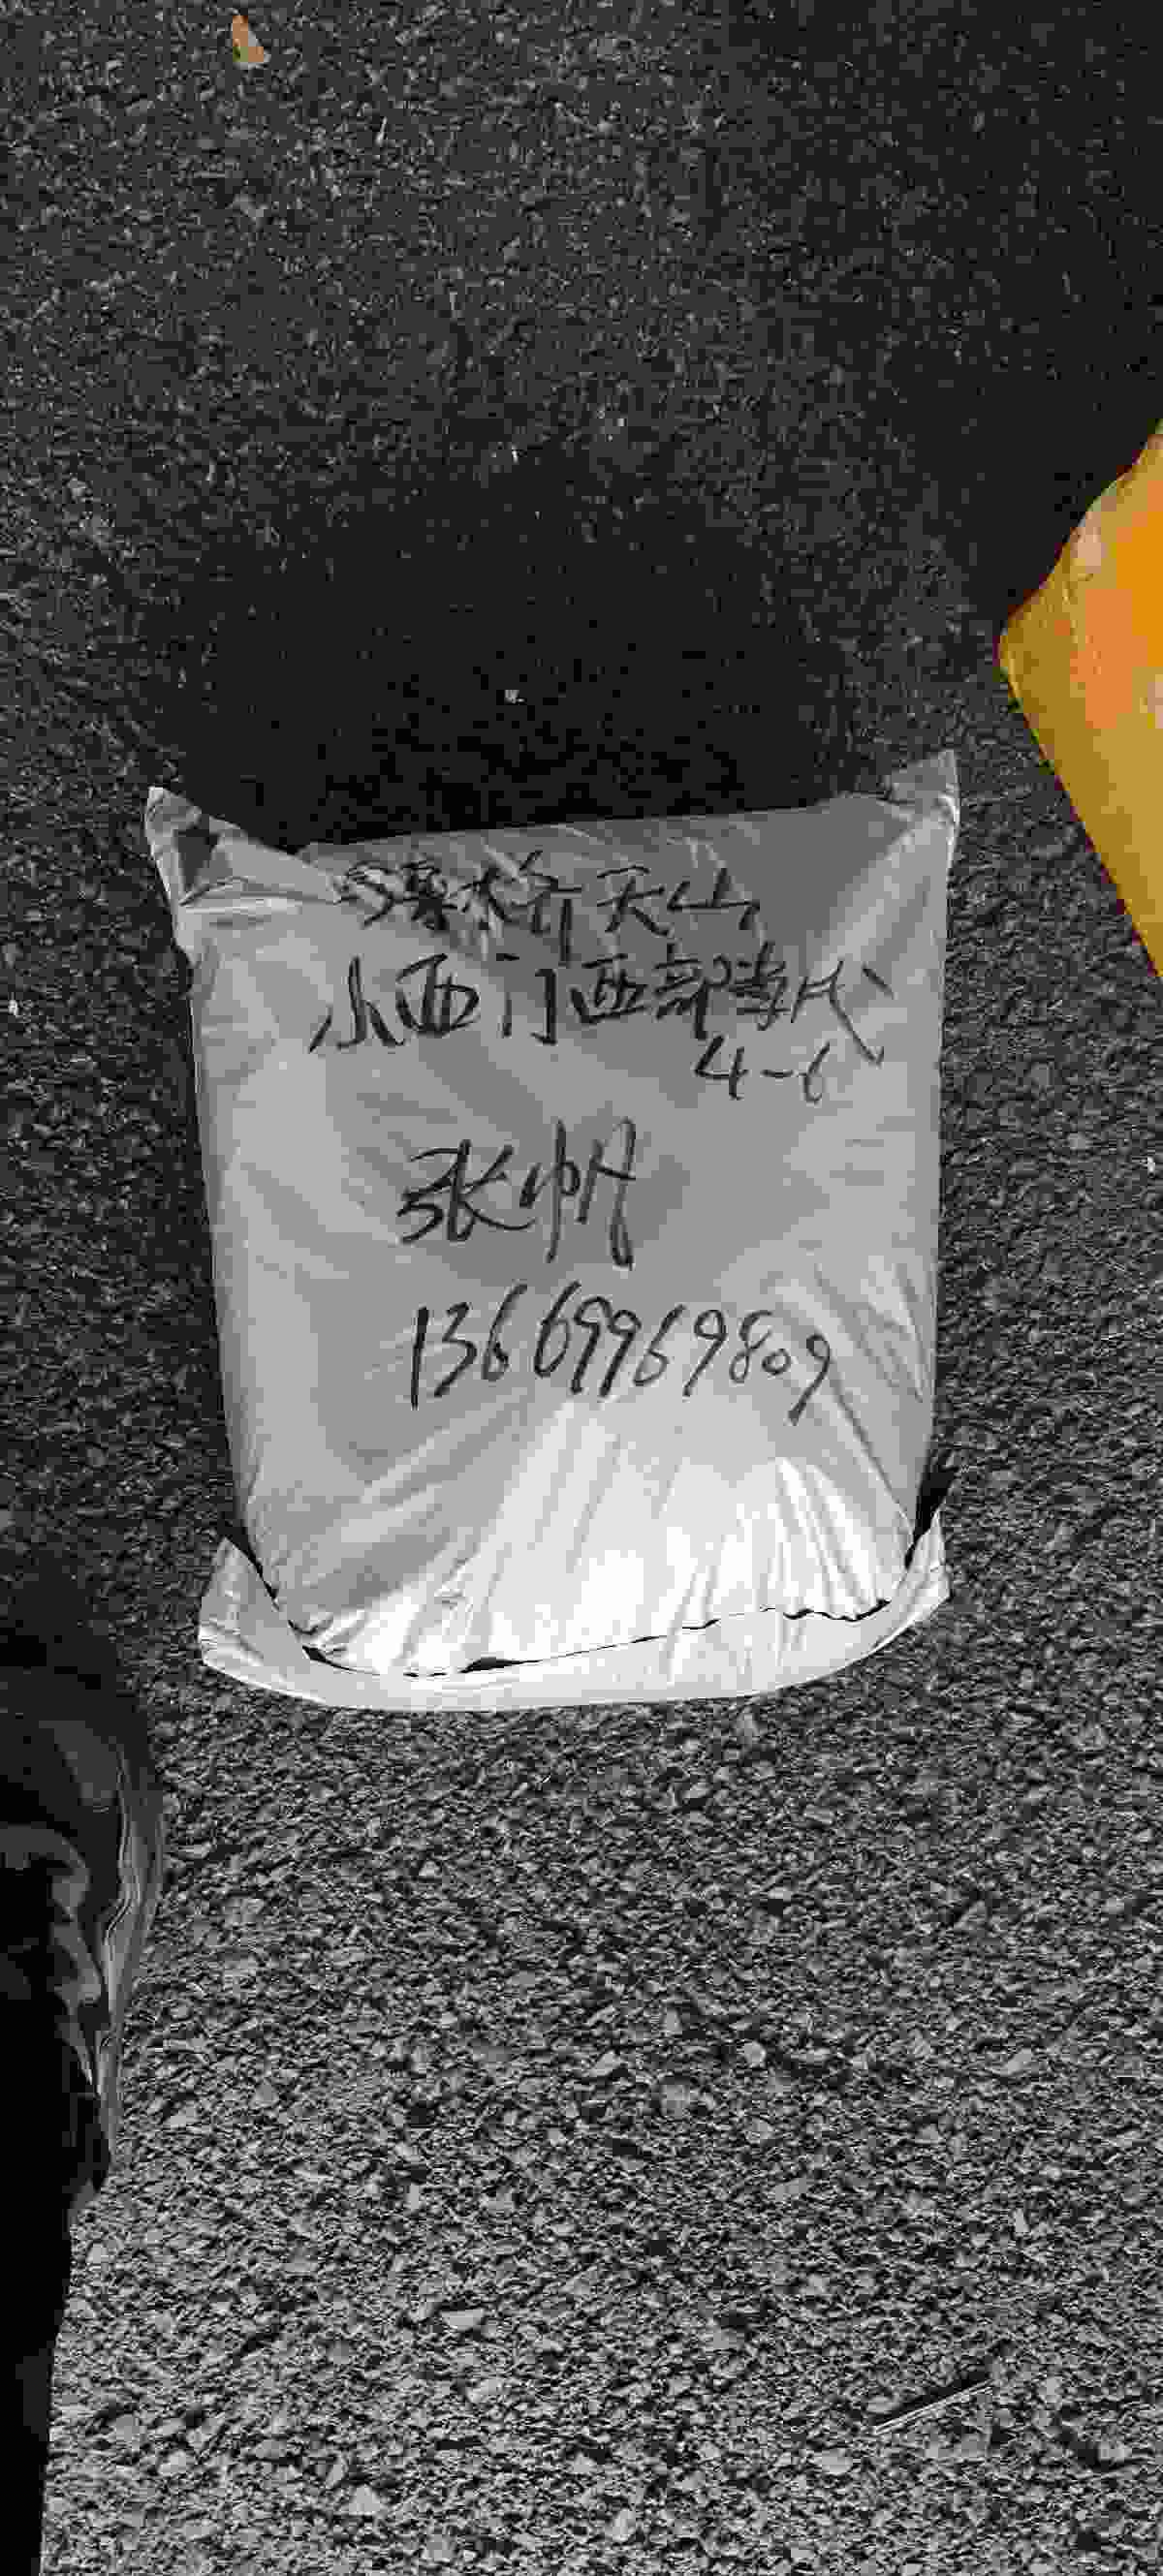 乌鲁木齐天山
小西门西部时代
4-6
张帆
13669969809